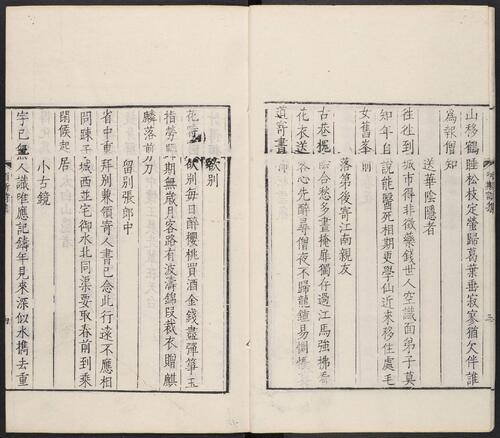 山移鶴睡松枝定螢歸葛葉垂寂寥猶欠伴誰
爲報僧知
送華陰隱者
往往到城市得非徵藥錢世人空識面弟子莫
知年自說能醫死相期更學仙近來移住處毛
女舊峯前
落第後寄江南親友
古巷槐陰合愁多晝掩扉獨行過江馬強拂看
花衣送客心先醉尋僧夜不歸龍鍾易惆悵
道寄書
別
花
每日醉櫻桃買酒金錢盡彈箏玉
指勞歸期無歲月客路有波濤錦段裁衣贈麒
麟落剪刀
留別張郎中
省中重拜別兼領寄人書已念此行遠不應相
問踈子城西並宅御水北同渠要取春前到乘
閑候起居
小古鏡
字已無人識唯應記鑄年見來深似水擕去重